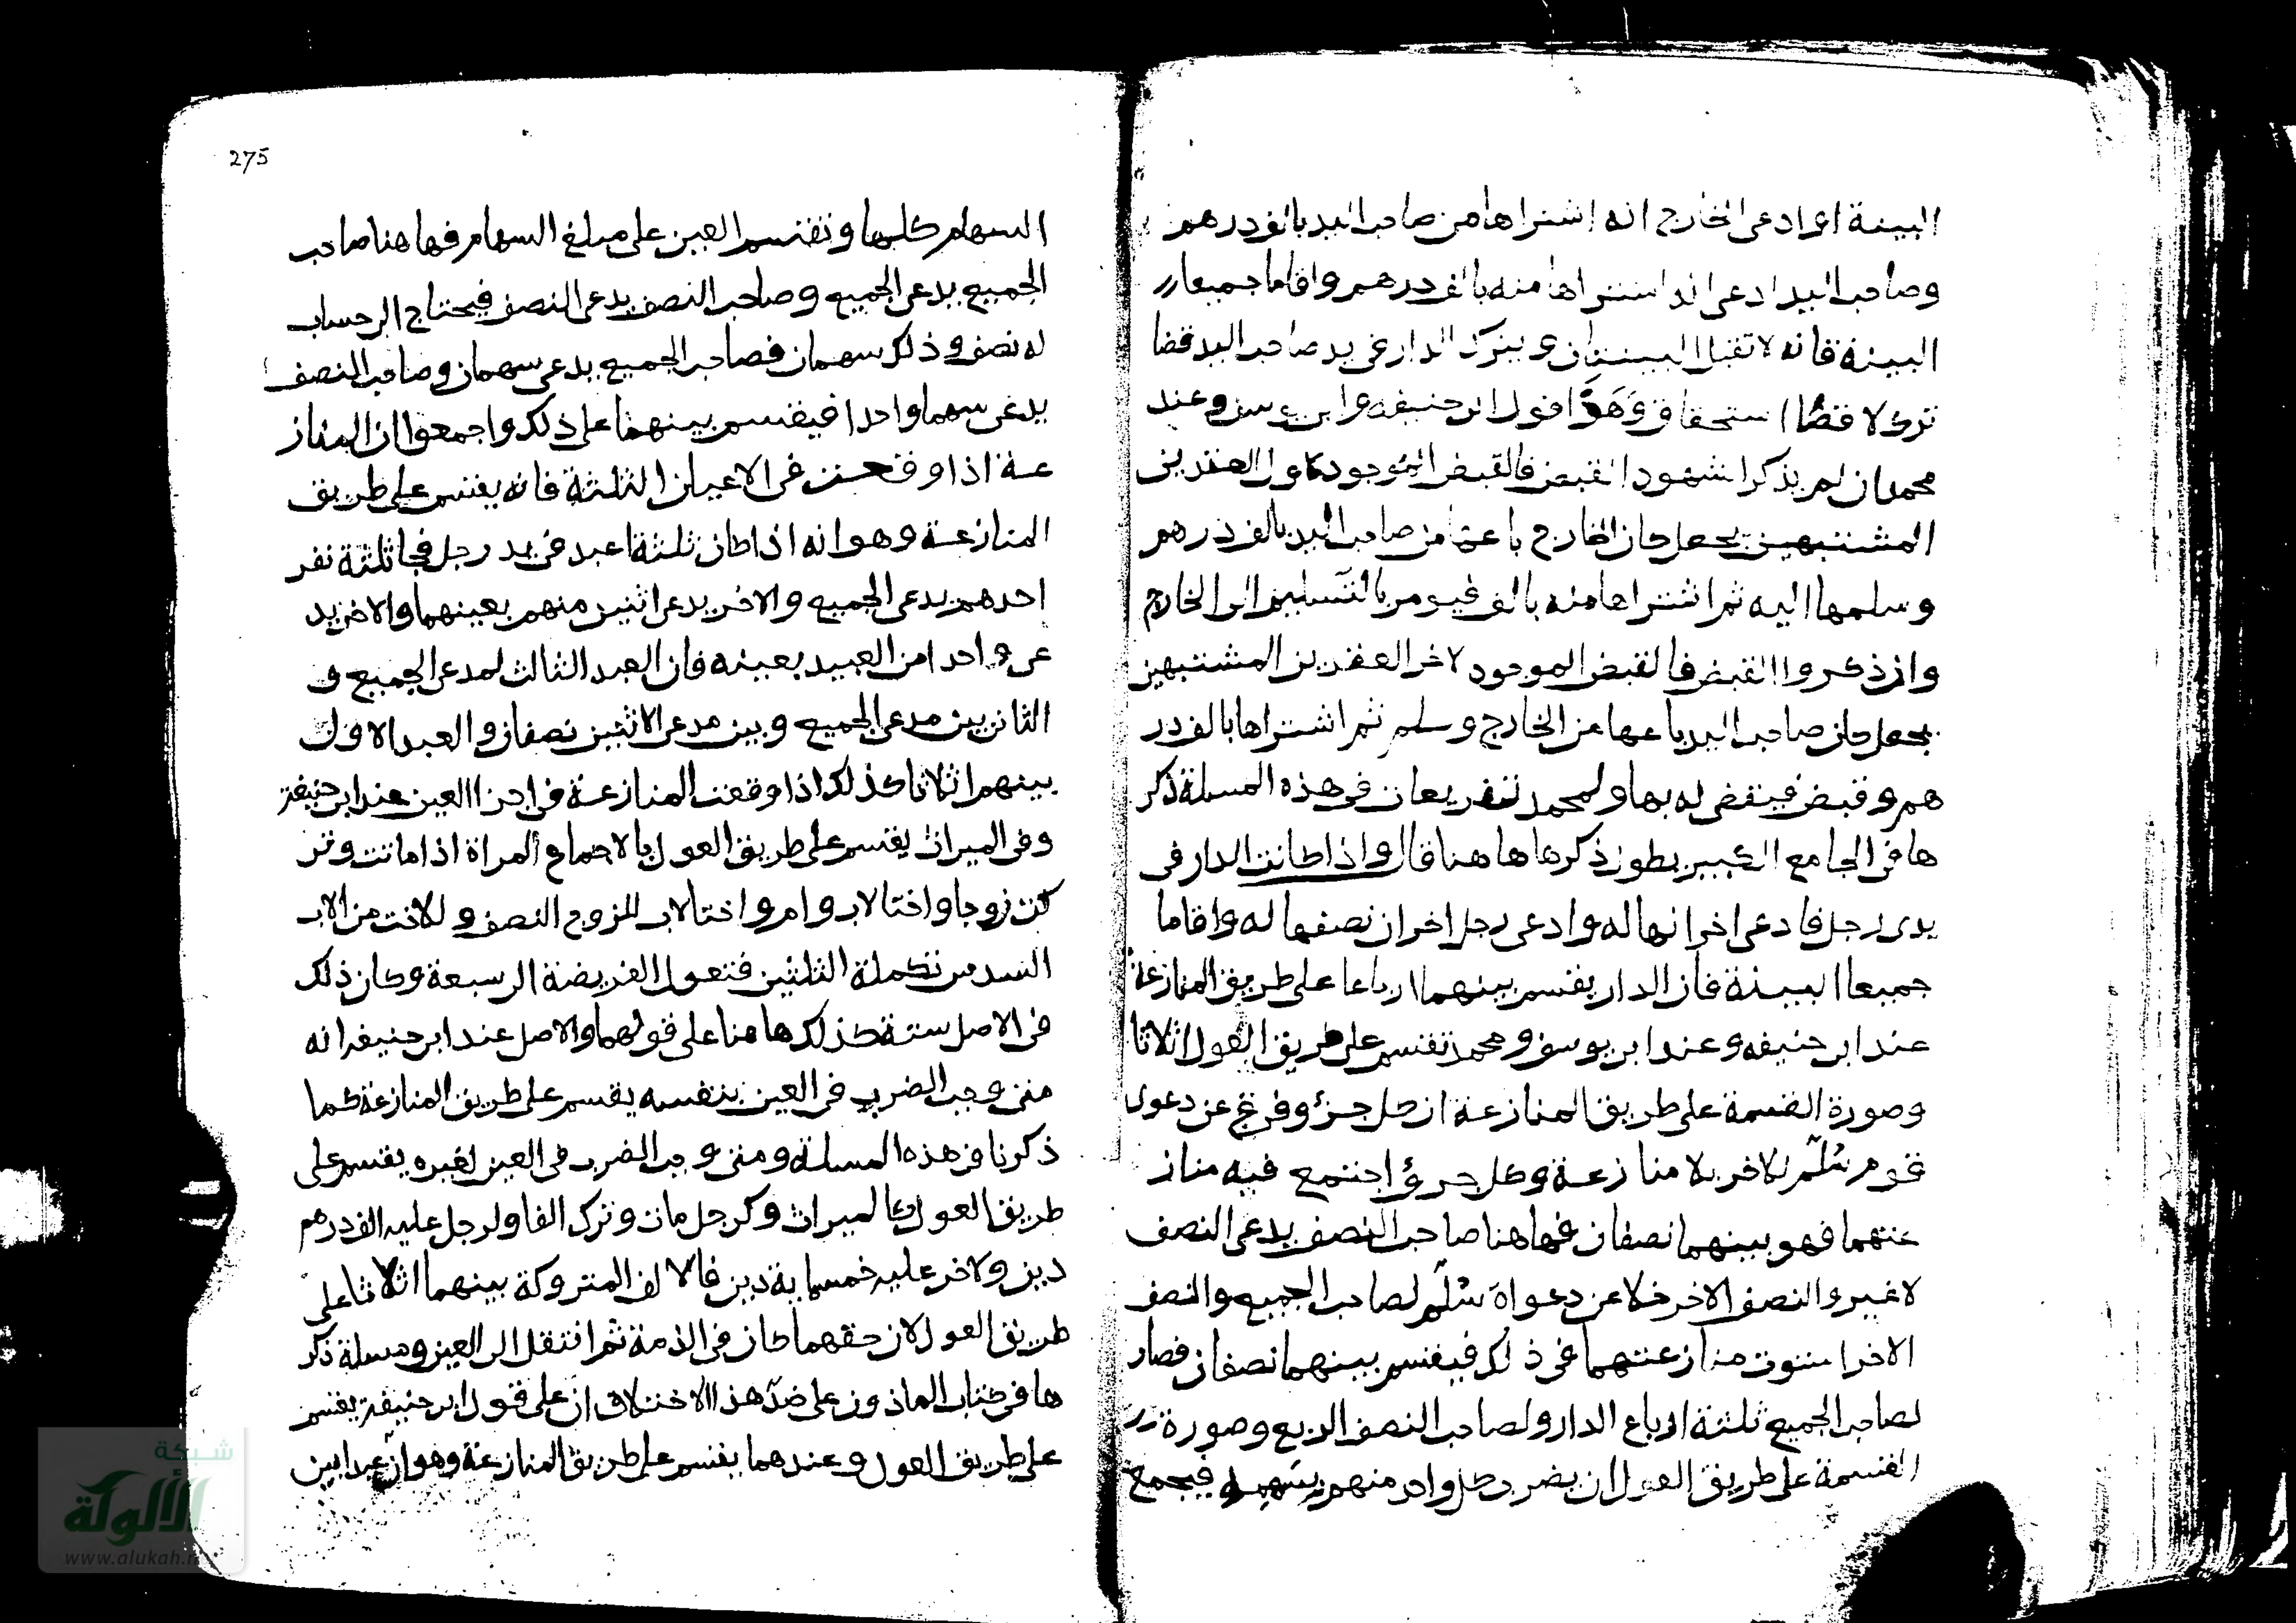 البينة او ادعى الخارج انه اشتراها من صاحب اليد بالف درهم
وصاحب اليد ادعى انه اشتراها منه بالف درهم واقاما جميعا
البينة فانه لا تقبل البينتان ويترك الدار في يد صاحب اليد قضا
ترك لا قضا استحقاق وهذا قول ابي حنيفه وابي يوسف وعند
محمد ان لم يذكرا شهود القبض فالقبض الموجود لاول العقدين
المشتبهين يجعل كان الخارج باعها من صاحب اليد بالف درهم
وسلمها اليه ثم اشتراها منه بالف فيومر بالتسليم الى الخارج
وان ذكروا القبض فالقبض الموجود لاخر العقدين المشتبهين
يجعل كان صاحب اليد باعها من الخارج وسلم ثم اشتراها بالف در
هم وقبض فيقضى له بها ولمحمد تفريعان في هذه المسلة ذكر
ها في الجامع الكبير بطول ذكرها ها هنا قال واذا كانت الدار في
يدى رجل فادعى اخر انها له وادعى رجل اخر ان نصفها له واقاما
جميعا البينة فان الدار يقسم بينهما ارباعا على طريق المنازعة
عند ابي حنيفه وعند ابي يوسف ومحمد تقسم على طريق العول اثلاثا
وصورة القسمة على طريق المنازعة ان كل جزؤ فرغ عن دعوى
قوم سُلّم للاخر بلا منازعة وكل جزؤ اجتمع فيه مناز
عتهما فهو بينهما نصفان فهاهنا صاحب النصف يدعى النصف
لا غير والنصف الاخر خلا عن دعواه سُلّم لصاحب الجميع والنصف
الاخر استوت منازعتهما في ذلك فيقسم بينهما نصفان فصار
لصاحب الجميع ثلثة ارباع الدار ولصاحب النصف الربع وصورة
القسمة على طريق العول ان يضرب كل واحد منهم بسهمه فيجمع
275
السهام كلها وتقتسم العين على مبلغ السهام فها هنا صاحب
الجميع يدعى الجميع وصاحب النصف يدعى النصف فيحتاج الى حساب
له نصف وذلك سهمان فصاحب الجميع يدعى سهمان وصاحب النصف
يدعى سهما واحدا فيقسم بينهما على ذلك واجمعوا ان المناز
عة اذا وقعت في الاعيان الثلثة فانه يقسم على طريق
المنازعة وهو انه اذا كان ثلثة اعبد في يد رجل فجا ثلثة نفر
احدهم يدعى الجميع والاخر يدعى اثنين منهم بعينهما والاخر يد
عى واحدا من العبيد بعينه فان العبد الثالث لمدعى الجميع و
الثاني بين مدعى الجميع وبين مدعى الاثنين نصفان والعبد الاول
بينهم اثلاثا كذلك اذا وقعت المنازعة في اجزا العين عند ابي حنيفة
وفي الميراث يقسم على طريق العول بالاجماع المراة اذا ماتت وتر
كت زوجا واختا لاب وام واختا لاب للزوج النصف وللاخت من الاب
السدس تكملة الثلثين فتعول الفريضة الى سبعة وكان ذلك
في الاصل ستة كذلك ها هنا على قولهما والاصل عند ابي حنيفه انه
متى وجب الضرب في العين بنفسه يقسم على طريق المنازعة كما
ذكرنا في هذه المسلة ومتى وجب الضرب في العين لغيره يقسم على
طريق العول كالميراث وكرجل مات وترك الفا ولرجل عليه الف درهم
دين ولاخر عليه خمسماية دين فالالف المتروكة بينهما اثلاثا على
طريق العول لان حقهما كان في الذمة ثم انتقل الى العين ومسلة ذكر
ها في كتاب الماذون على ضدّ هذا الاختلاف ان على قول ابي حنيفة يقسم
على طريق العول وعندهما يقسم على طريق المنازعة وهو ان عبدا بين
شبكة
الألوكة
www.alukah.n